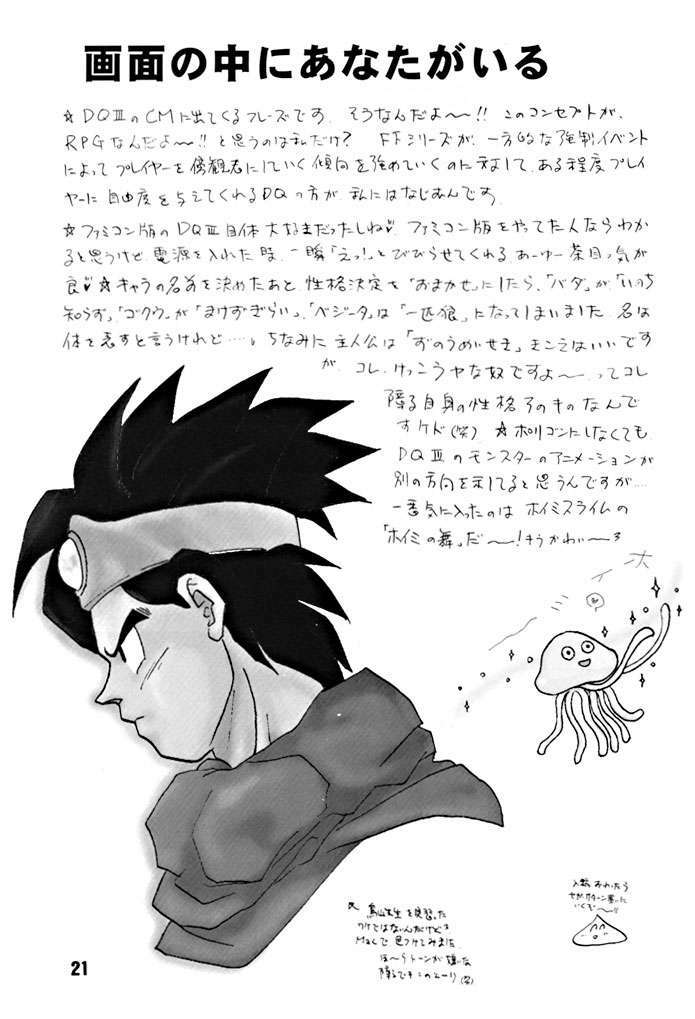 画面の中にあなたがいる
☆DQⅢのCMに出てくるフレーズです。そうなんだよ〜!! このコンセプトが、
RPGなんだよ〜!! と思うのは私だけ? FFシリーズが、一方的な強制イベント
によってプレイヤーを傍観者にしていく傾向を強めていくのに対して、ある程度プレイ
ヤーに自由度を与えてくれるDQの方が、私にはなじみんです。
☆ファミコン版のDQⅢ自体大好きだったしね♥ ファミコン版をやってた人ならわか
ると思うけど、電源を入れた時、一瞬「えっ!」とびびらせてくれる、あーゆー茶目っ気が
良♥ ☆キャラの名前を決めたあと、性格決定を「おまかせ」にしたら、「バダ」が「いのち
知らず」、「ゴクウ」が「まけずぎらい」、「ベジータ」は「一匹狼」になってしまいました。名は
体を表すと言うけれど……。ちなみに主人公は「ずのうめいせき」。きこえはいいです
が、コレ、けっこうヤな奴ですよ〜。ってコレ
障る自身の性格そのものなんで
すケド(笑) ☆ポリゴンにしなくても、
DQⅢのモンスターのアニメーションが
別の方向を示してると思うんですが…
一番気に入ったのはホイミスライムの
「ホイミの舞」だ〜! もうかわい〜
ホイミ
☆鳥山先生を練習した
ワケではないんだけど
Macで色つけてみました
障るです このとーり(笑)
入稿おわったら
いくぞ〜!!
21